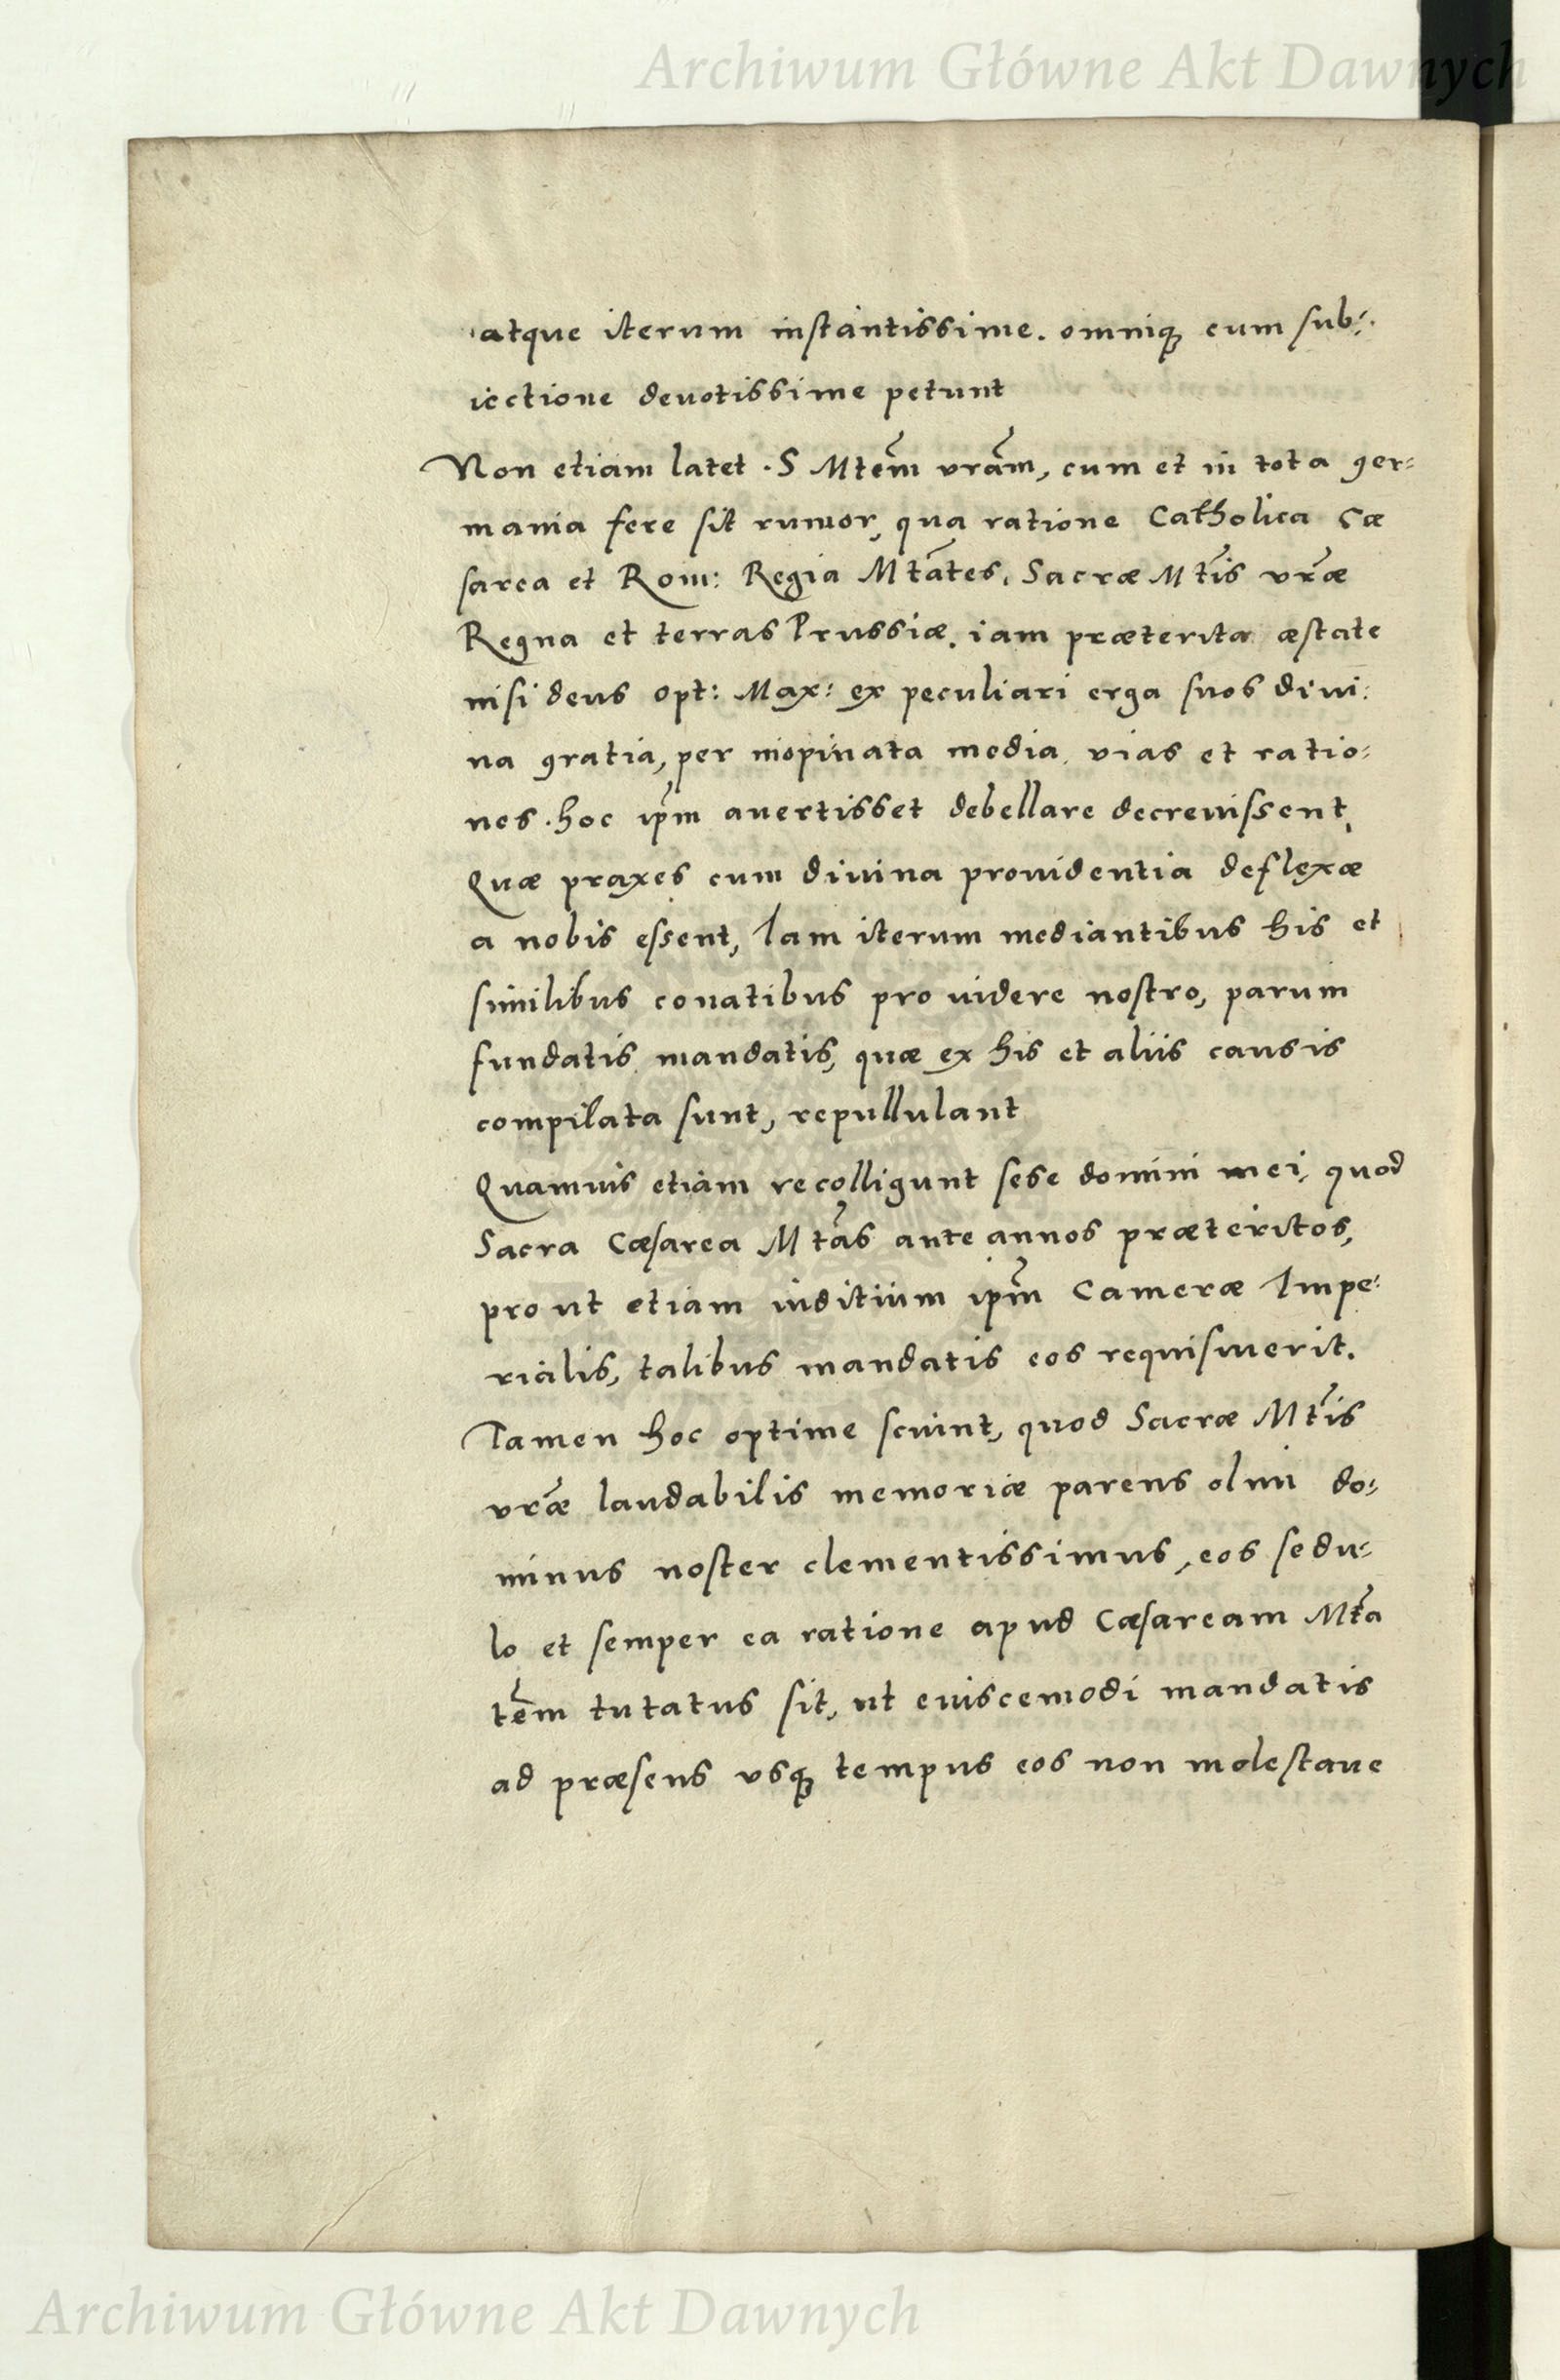 Archiwum Główne Akt Dawnych
atque iterum instantissime. omniq; cum sub⸗
iectione deuotissime petunt
Non etiam latet . S Mtem̃ vrãm, cum et in tota ger⸗
mania fere sit rumor, qua ratione Catholica Cæ
sarea et Rom: Regia Mtãtes, Sacræ Mtĩs vrãe
Regna et terras Prussiæ, iam præterita æstate
nisi deus opt: Max: ex peculiari erga suos diui⸗
na gratia, per inopinata media, vias et ratio⸗
nes . hoc ipm̃ auertisset debellare decreuissent,
Quæ praxes cum diuina prouidentia deflexæ
a nobis essent, Iam iterum mediantibus his et
similibus conatibus pro videre nostro, parum
fundatis mandatis, quæ ex his et aliis causis
compilata sunt, repullulant
Quamuis etiam recolligunt sese domini mei, quod
Sacra Cæsarea Mtãs ante annos præteritos,
pro ut etiam iuditium ipm̃ Cameræ Impe⸗
rialis, talibus mandatis eos requisiuerit.
Tamen hoc optime sciunt, quod Sacræ Mtĩs
vrãe laudabilis memoriæ parens olim do⸗
minus noster clementissimus, eos sedu⸗
lo et semper ea ratione apud Cæsaream Mtã
tem̃ tutatus sit, ut euiscemodi mandatis
ad præsens vsq; tempus eos non molestaue
Archiwum Główne Akt Dawnych